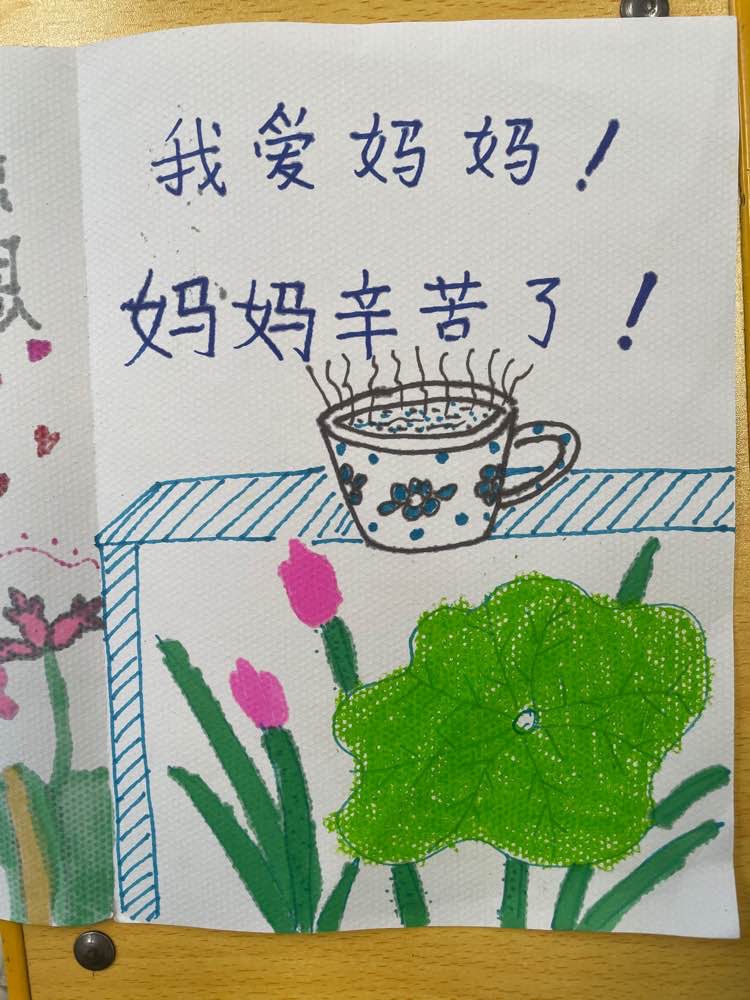 我爱妈妈！
妈妈辛苦了！